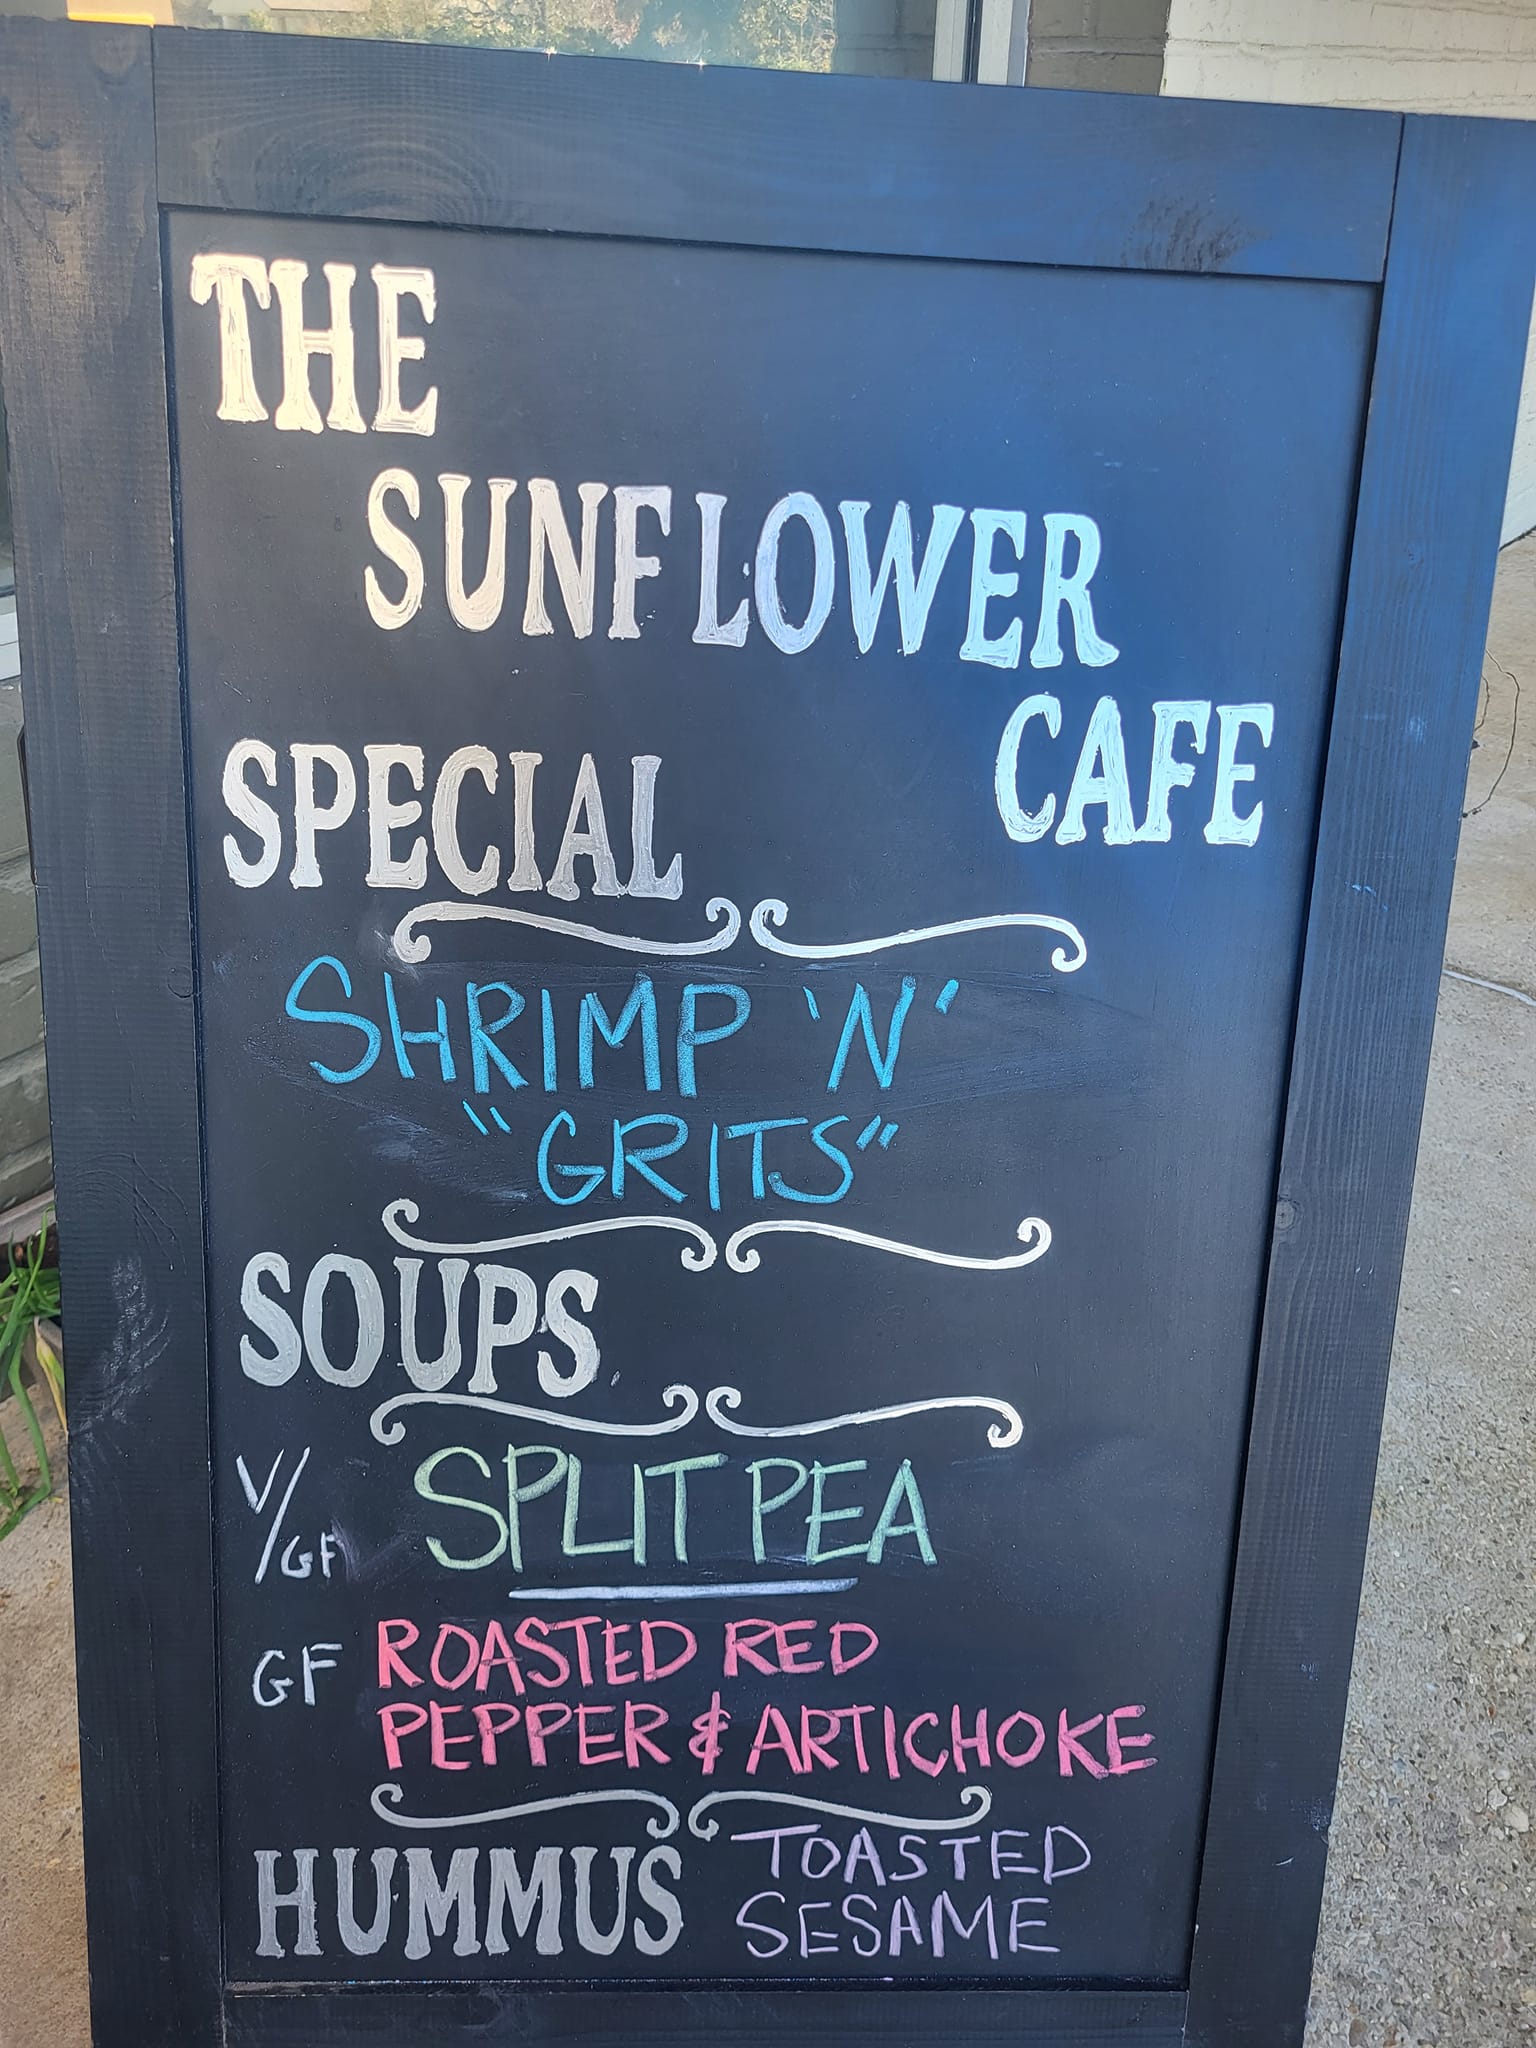 THE
SUNFLOWER
CAFE
SPECIAL
SHRIMP 'N'
"GRITS"
SOUPS
V/GF SPLIT PEA
GF ROASTED RED
PEPPER & ARTICHOKE
HUMMUS TOASTED
SESAME